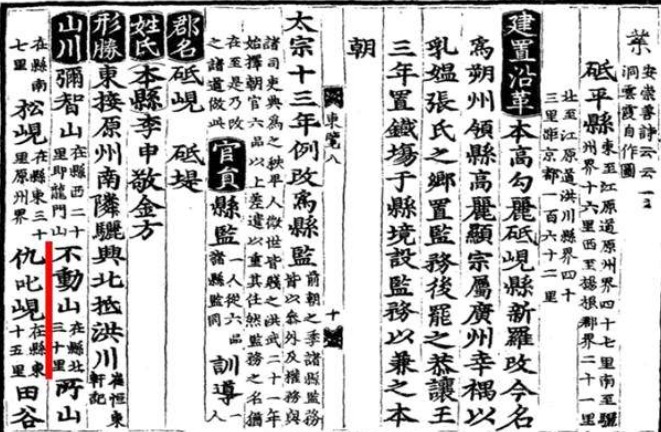 安崇善詩云云一二
洞雲霞自作圖
砥平縣 東至江原道原州界四十七里南至驪
州界十六里西至楊根郡界二十一里
北至江原道洪川縣界四十
三里距京都一百六十二里
建置沿革 本高勾麗砥峴縣新羅改今名
爲朔州領縣高麗顯宗屬廣州辛禑以
乳媼張氏之鄉置監務後罷之恭讓王
三年置鐵場于縣境設監務以兼之本
朝
東覽八 十
太宗十三年例改爲縣監 前朝之季諸縣監務
皆以叅外及權務與
諸司吏典爲之秩卑人微世皆賤之洪武二十一年
始擇朝官六品以上差遣以重其任然監務之名猶
在至是乃改
之諸道倣此 官員 縣監 一人從六品
諸縣監同 訓導 一人
郡名 砥峴 砥堤
姓氏 本縣李申敬金方
形勝 東接原州南隣驪興北抵洪川 崔恒東
軒記
山川 彌智山 在縣西二十
里即龍門山 不動山 在縣北
三十里 所山
在縣南
七里 松峴 在縣東三十
里原州界 仇叱峴 在縣東
十五里 田谷